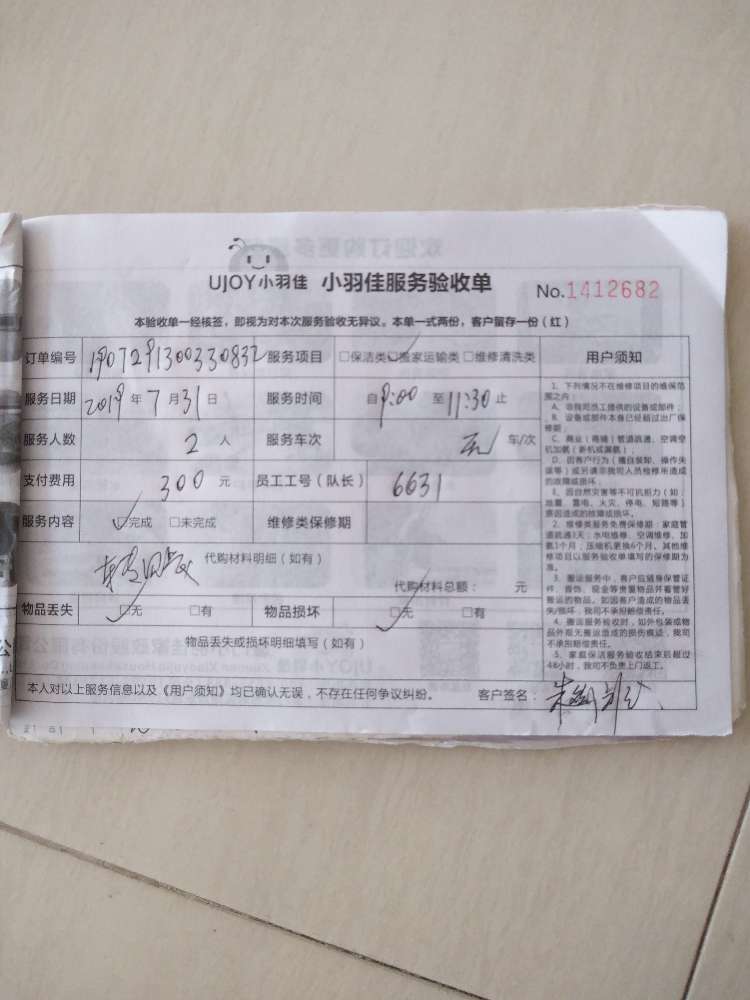 UJOY小羽佳 小羽佳服务验收单 No.1412682
本验收单一经核签，即视为对本次服务验收无异议。本单一式两份，客户留存一份（红）
订单编号 190729130033083 服务项目 □保洁类 □搬家运输类 □维修清洗类
服务日期 2019年7月31日 服务时间 自9:00至11:30止
服务人数 2人 服务车次 车/次
支付费用 300元 员工工号（队长） 6631
服务内容 □完成 □未完成 维修类保修期
代购材料明细（如有）
代购材料总额： 元
物品丢失 □无 □有 物品损坏 □无 □有
物品丢失或损坏明细填写（如有）
本人对以上服务信息以及《用户须知》均已确认无误，不存在任何争议纠纷。 客户签名：
用户须知
1、下列情况不在维修项目的维保范
围之内：
A、非我司员工提供的设备或部件；
B、设备或部件本身已经超过出厂保
修期；
C、商业（商铺）管道疏通、空调空
机加氨（新机或漏氨）；
D、因客户行为（擅自装卸、操作失
误等）或另请非我司人员检修所造成
的故障或损坏；
E、因自然灾害等不可抗拒力（如：
雷电、火灾、停电、短路等）
原因造成的故障或损坏。
2、维修类服务免费保修期：家庭管
道疏通3天；水电维修、空调维修、加
氨1个月；压缩机更换6个月。其他维
修项目以服务验收单填写的保修期为
准。
3、搬运服务中，客户应随身保管证
件、首饰、现金等贵重物品并看管好
搬运的物品。如因客户造成的物品丢
失/损坏，我司不承担赔偿责任。
4、搬运服务验收时，如外包装或物
品外观无搬运造成的损伤痕迹，我司
不承担赔偿责任。
5、家庭保洁服务验收结束后超过
48小时，我司不负责上门返工。